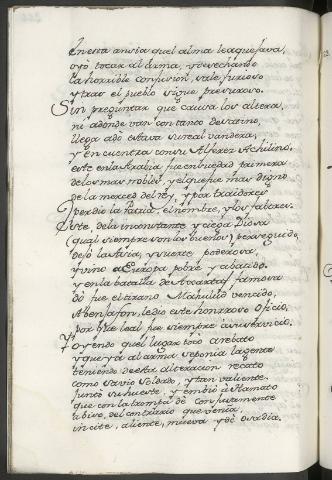 En esta ansia quel alma le aquexava,
oyó tocar al Arma, y desechando
la horrible confusion, sale furioso
y tras el pueblo sigue presuroso.
Sin preguntar que causa los altera,
ni adonde van con tanto desatino,
llega adó estava su real vandera,
y en cuentra con su Alferez Achilino,
este en la Arabia fue en su edad primera
de los mas nobles, y el que fue mas digno
de la merced del rey, y por traidores
perdio la Patria, el nombre, y los favores.
Este, de la inconstante y ciega Diosa
(qual siempre son los buenos) perseguido
dexó la Asia, y suerte poderosa,
y vino a Europa pobre y abatido.
y en la batalla de famosa
dó fue el tirano Mahulud vencido,
Abensafon, le dio este honroso Oficio,
por que leal fue siempre a su servicio.
Y oyendo quel lugar tocó a rebato
y que ya al arma se ponia la gente
teniendo desta alteracion recato
como savio Soldado, y tan valiente.
junto su hueste, y embió a
que con la trompa de confusamente
al contrario que venia,
incite, aliente, mueva y dé osadia.